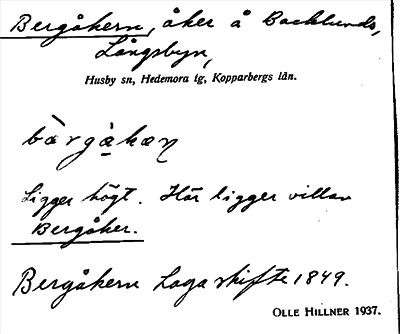 Bergåkern, åker å Backlunds,
Långsbyn,
Husby sn, Hedemora tg, Kopparbergs län.
bàrgàkæṇ
Ligger högt. Här ligger villan
Bergåker.
Bergåkern Laga skifte 1849.
OLLE HILLNER 1937.